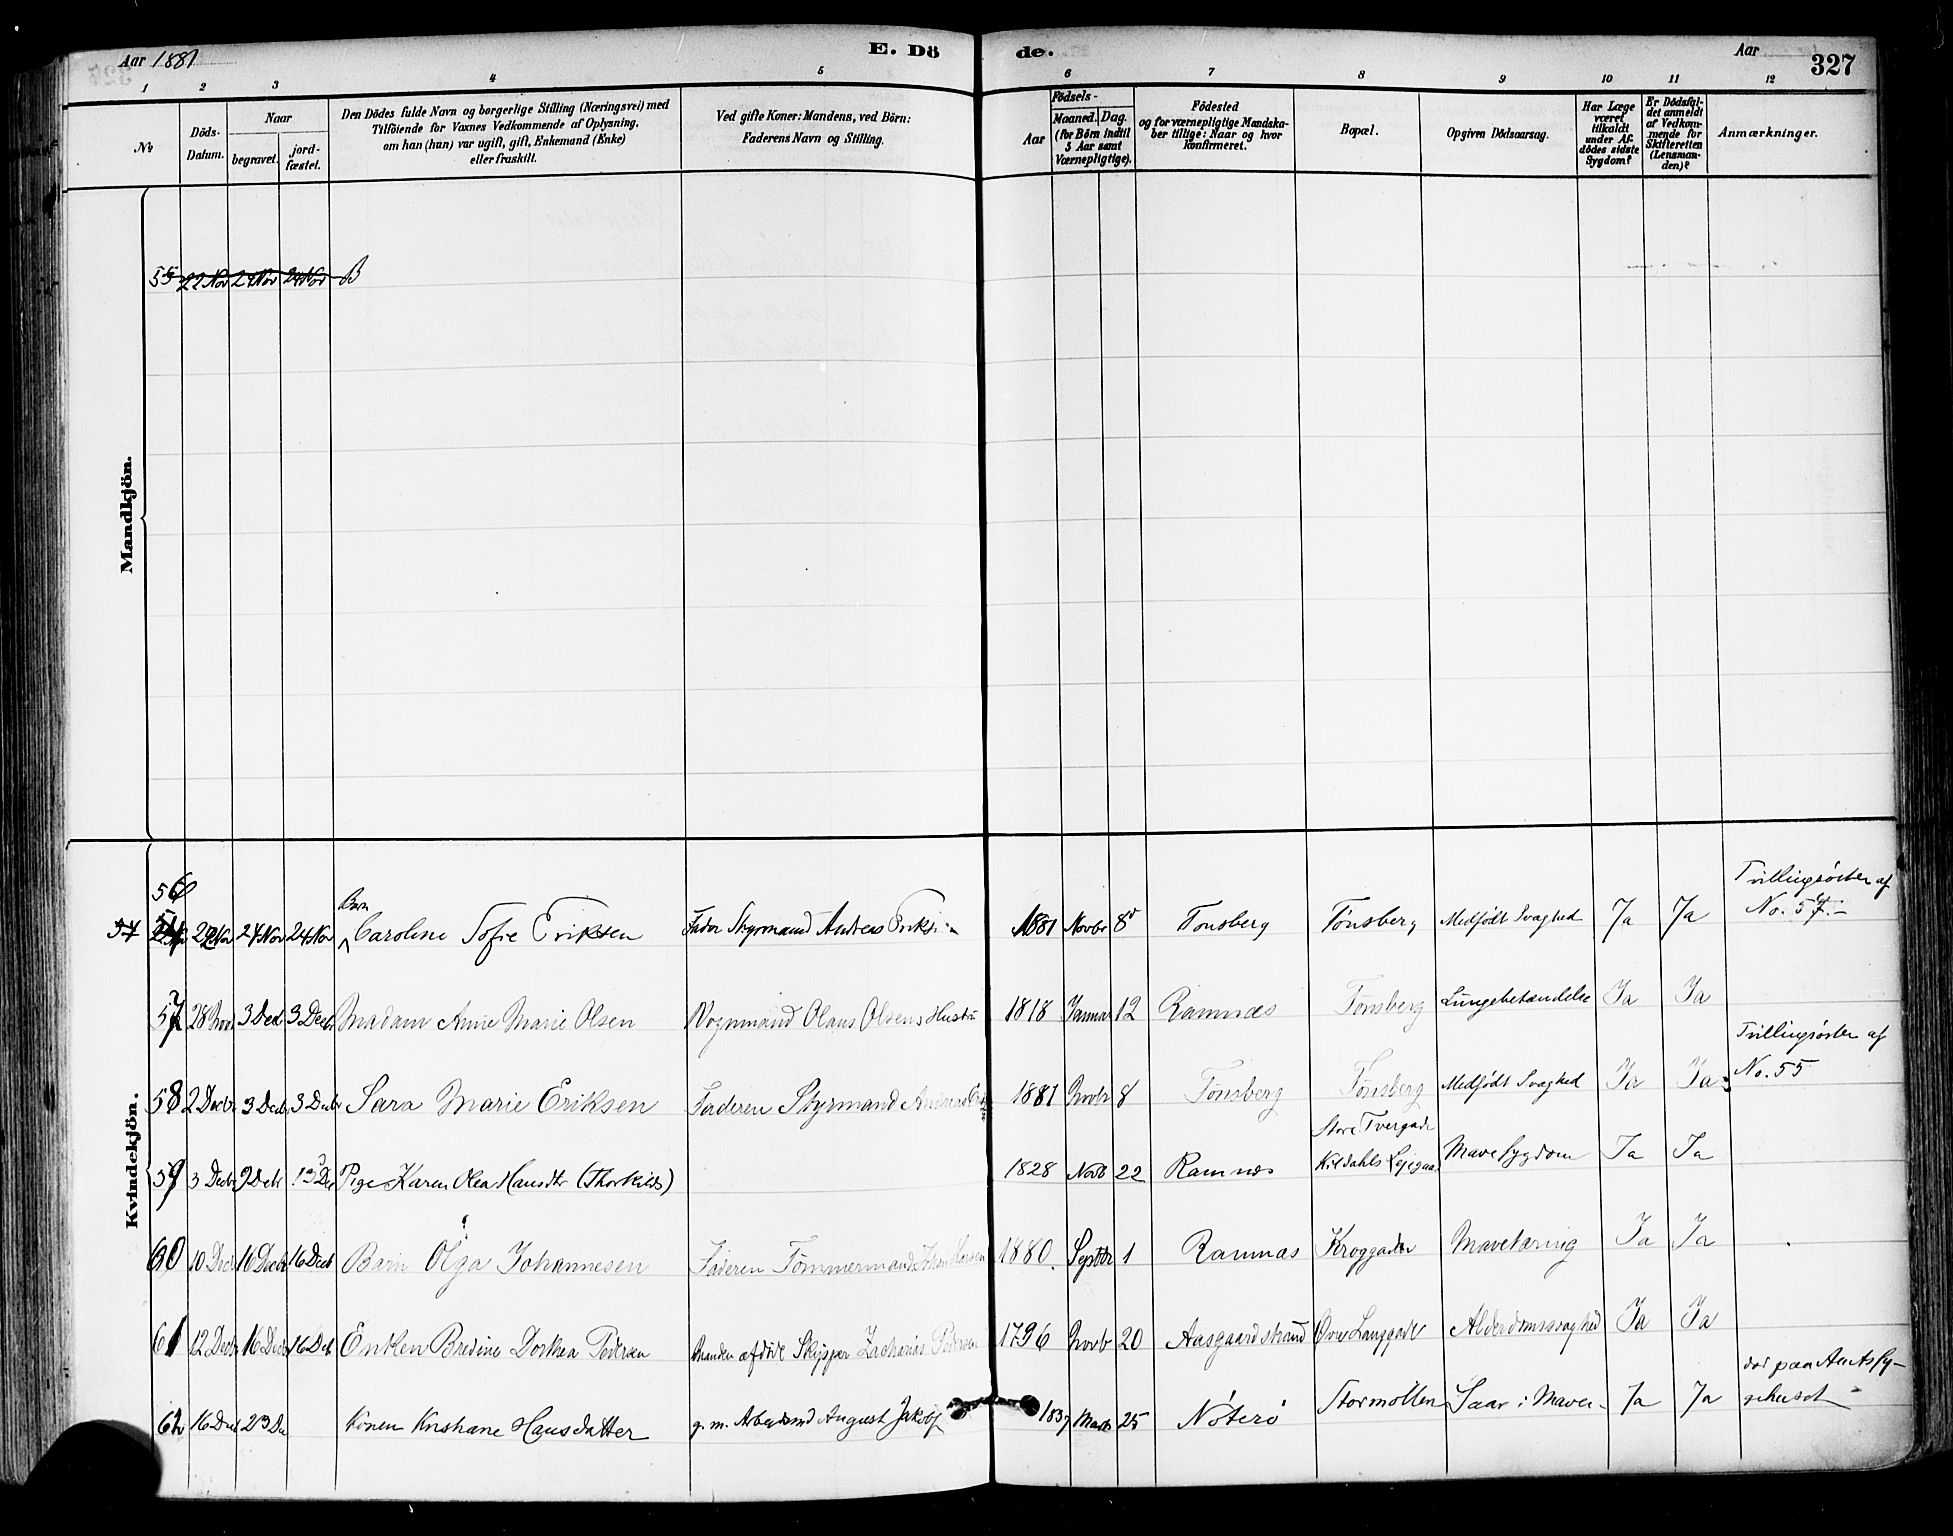 Aar 1881
E. Dö
de.
Aar
327
1 2 3 4 5 6 7 8 9 10 11 12
No
Döds-
Datum.
Naar
begravet.
jord-
fæstet.
Den Dödes fulde Navn og borgerlige Stilling (Næringsvei) med
Tilföiende for Voxnes Vedkommende af Oplysning,
om han (hun) var ugift, gift, Enkemand (Enke)
eller fraskilt.
Ved gifte Koner: Mandens, ved Börn:
Faderens Navn og Stilling.
Födsels-
Aar
Maaned.
Dag.
(for Börn indtil
5 Aar samt
Værnepligtige).
Födested
og for værnepligtige Mandska-
ber tillige: Naar og hvor
konfirmeret.
Bopæl.
Opgiven Dödsaarsag.
Har Læge
været
tilkaldt
under Af-
dödes sidste
Sygdom?
Er Dödsfal-
det anmeldt
af Vedkom-
mende for
Skifteretten
(Lensman-
den)?
Anmærkninger.
Mandkjön.
55 22 Nov 24 Nov 24 Nov B
Kvindekjön.
56
57 22 Nov 24 Nov 24 Nov Barn Caroline Sofie Eriksen Fader Styrmand Andreas Eriksen 1881 Novbr 8d Tønsberg Tønsberg Medfødt Svaghed Ja Ja Tvillingsøster af
No. 57.-
57 28 Nov 3 Dec 3 Decbr Madam Anne Marie Olsen Vognmand Olaus Olsens Hustru 1818 Januar 12 Ramnæs Tønsberg Lungebetændelse Ja Ja
58 2 Decbr 3 Decb 3 Decbr Sara Marie Eriksen Faderen Styrmand Andreas 1881 Novbr 8 Tønsberg Tønsberg Medfødt Svaghed Ja Ja Tvillingsøster af
No. 55
59 3 Decbr 9 Decbr 13 Dec Pige Karen Olea Hansdtr (Thorkilds) 1828 Novb 22 Ramnæs Store Tvergade
Kildahls Leiegaa Mavesygdom Ja Ja
60 10 Decb 16 Decbr 16 Decb Barn Olga Johannesen Faderen Tømmermand Johan Larsen 1880. Septbr 1 Ramnæs Kroggaden Mavetæring Ja Ja
61 12 Decbr 16 Decbr 16 Decb Enken Bredine Dorthea Pedersen Manden afdøde Skipper Zacharias Pedersen 1796 Novb 20 Aasgaardstrand Øvre Langgade Alderdomssvaghed Ja Ja
62 16 Dec 23 De Konen Kristiane Hansdatter g. m. Arbeidsmd August Jakobs 1837 Marts 25 Nøterø Stormollen Saar i Maven- Ja Ja var paa Amtssy-
gehuset